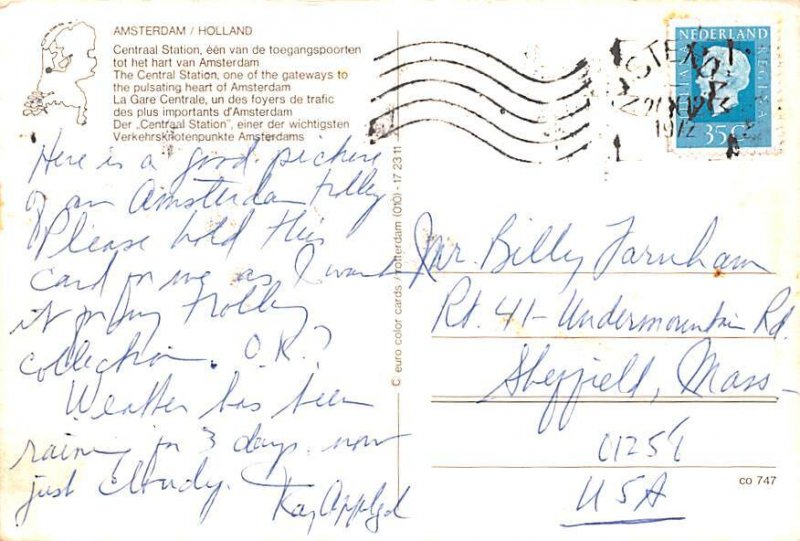 AMSTERDAM / HOLLAND
Centraal Station, één van de toegangspoorten
tot het hart van Amsterdam
The Central Station, one of the gateways to
the pulsating heart of Amsterdam
La Gare Centrale, un des foyers de trafic
des plus importants d'Amsterdam
Der „Centraal Station", einer der wichtigsten
Verkehrsknotenpunkte Amsterdams
Here is a good picture
of an Amsterdam trolley
Please hold this
card for me as I want
it for my trolley
collection. O.K.?
Weather has been
raining for 3 days. now
just cloudy.
Kay
© euro color cards / rotterdam (010) - 17 23 11
NEDERLAND
JULIANA REGINA
35 C
1972
Mr. Billy Farnham
Rt. 41 - Undermountain Rd.
Sheffield, Mass
USA
co 747